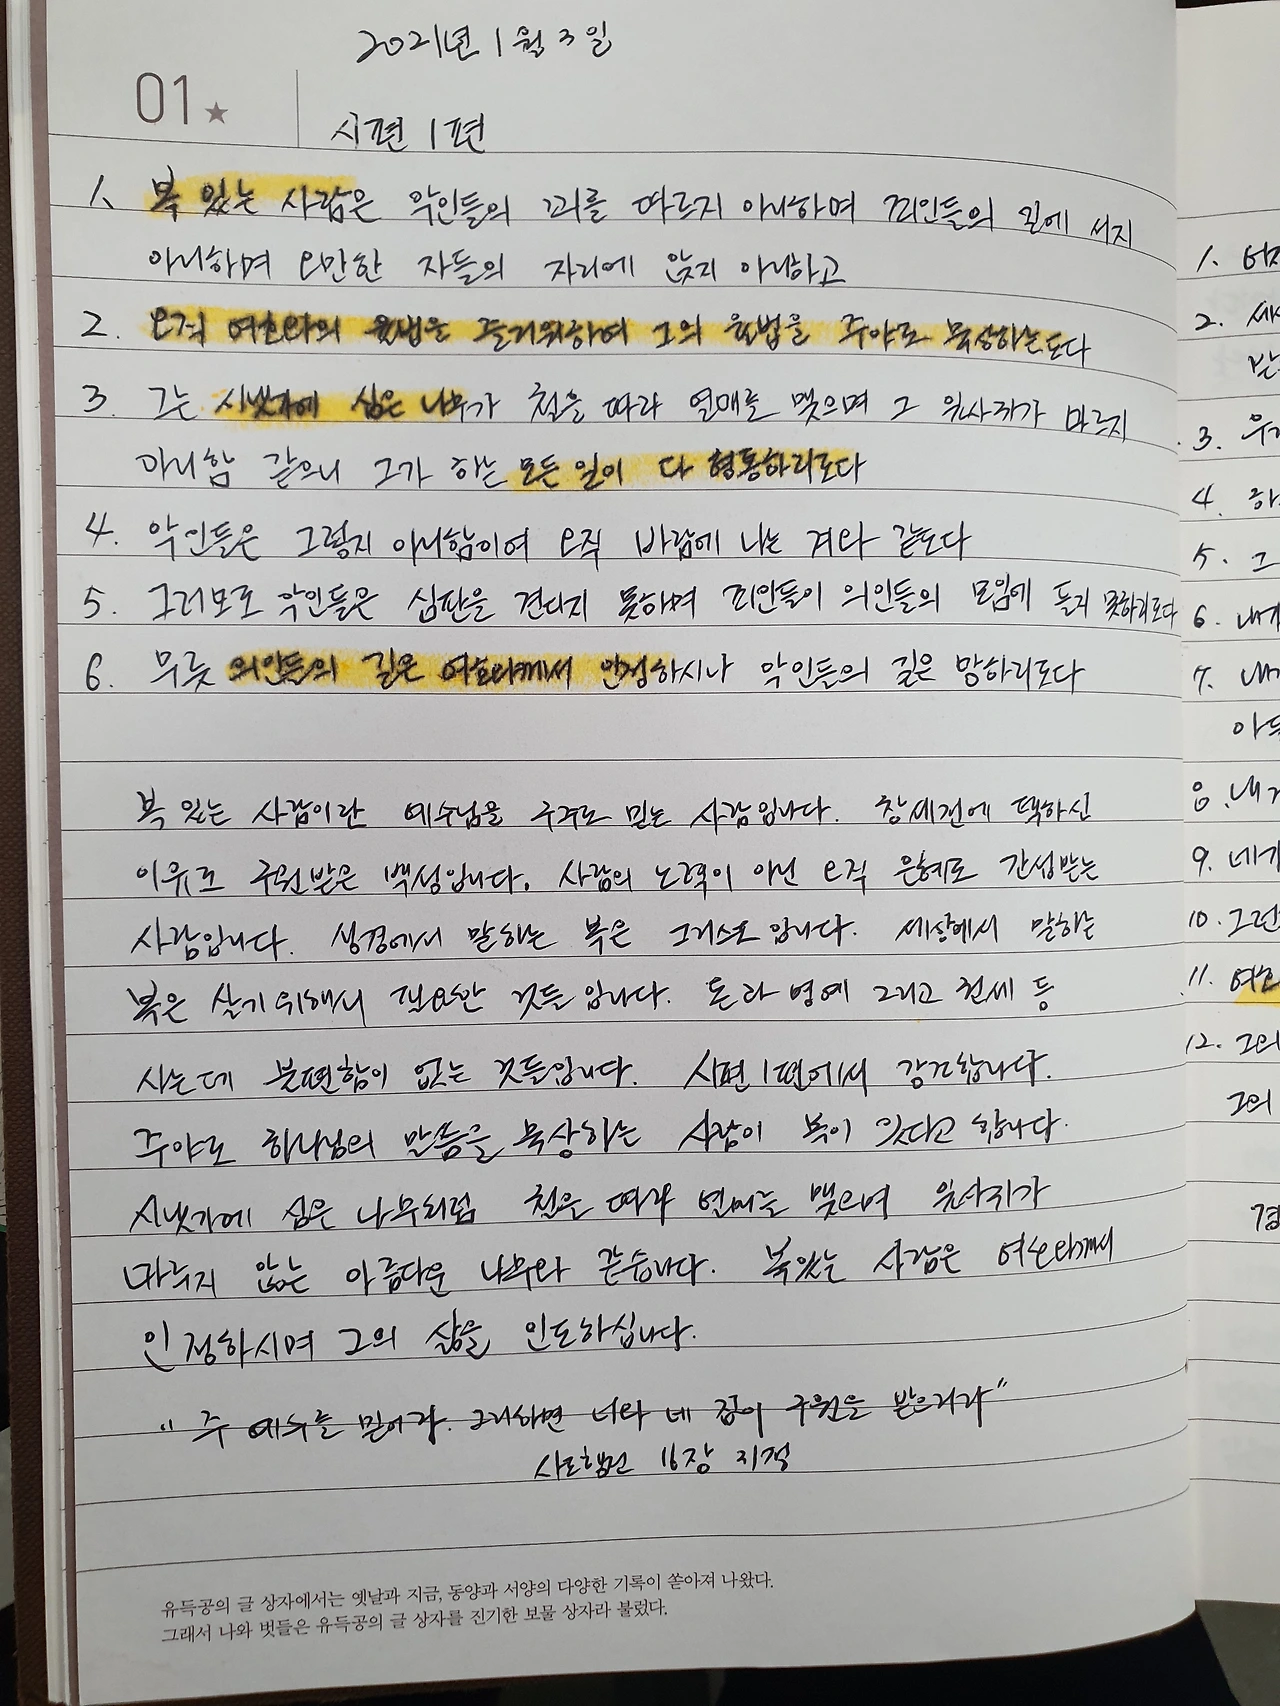 2021년 1월 3일
01★
시편 1편
1. 복 있는 사람은 악인들의 꾀를 따르지 아니하며 죄인들의 길에 서지
아니하며 오만한 자들의 자리에 앉지 아니하고
2. 오직 여호와의 율법을 즐거워하여 그의 율법을 주야로 묵상하는도다
3. 그는 시냇가에 심은 나무가 철을 따라 열매를 맺으며 그 잎사귀가 마르지
아니함 같으니 그가 하는 모든 일이 다 형통하리로다
4. 악인들은 그렇지 아니함이여 오직 바람에 나는 겨와 같도다
5. 그러므로 악인들은 심판을 견디지 못하며 죄인들이 의인들의 모임에 들지 못하리로다
6. 무릇 의인들의 길은 여호와께서 인정하시나 악인들의 길은 망하리로다
복 있는 사람이란 예수님을 구주로 믿는 사람입니다. 창세전에 택하신
이유로 구원받은 백성입니다. 사람의 노력이 아닌 오직 은혜로 간섭받는
사람입니다. 성경에서 말하는 복은 그리스도입니다. 세상에서 말하는
복은 살기위해서 필요한 것들입니다. 돈과 명예 그리고 권세 등
사는데 불편함이 없는 것들입니다. 시편 1편에서 강조합니다.
주야로 하나님의 말씀을 묵상하는 사람이 복이 있다고 합니다.
시냇가에 심은 나무처럼 철을 따라 열매를 맺으며 잎사귀가
마르지 않는 아름다운 나무와 같습니다. 복있는 사람은 여호와께서
인정하시며 그의 삶을 인도하십니다.
"주 예수를 믿어라. 그리하면 너와 네 집이 구원을 받으리라"
사도행전 16장 31절
유득공의 글 상자에서는 옛날과 지금, 동양과 서양의 다양한 기록이 쏟아져 나왔다.
그래서 나와 벗들은 유득공의 글 상자를 진기한 보물 상자라 불렀다.
1.
2.
3.
4.
5. 그
6.
7.
8.
9.
10.
11.
12. 그의
그의